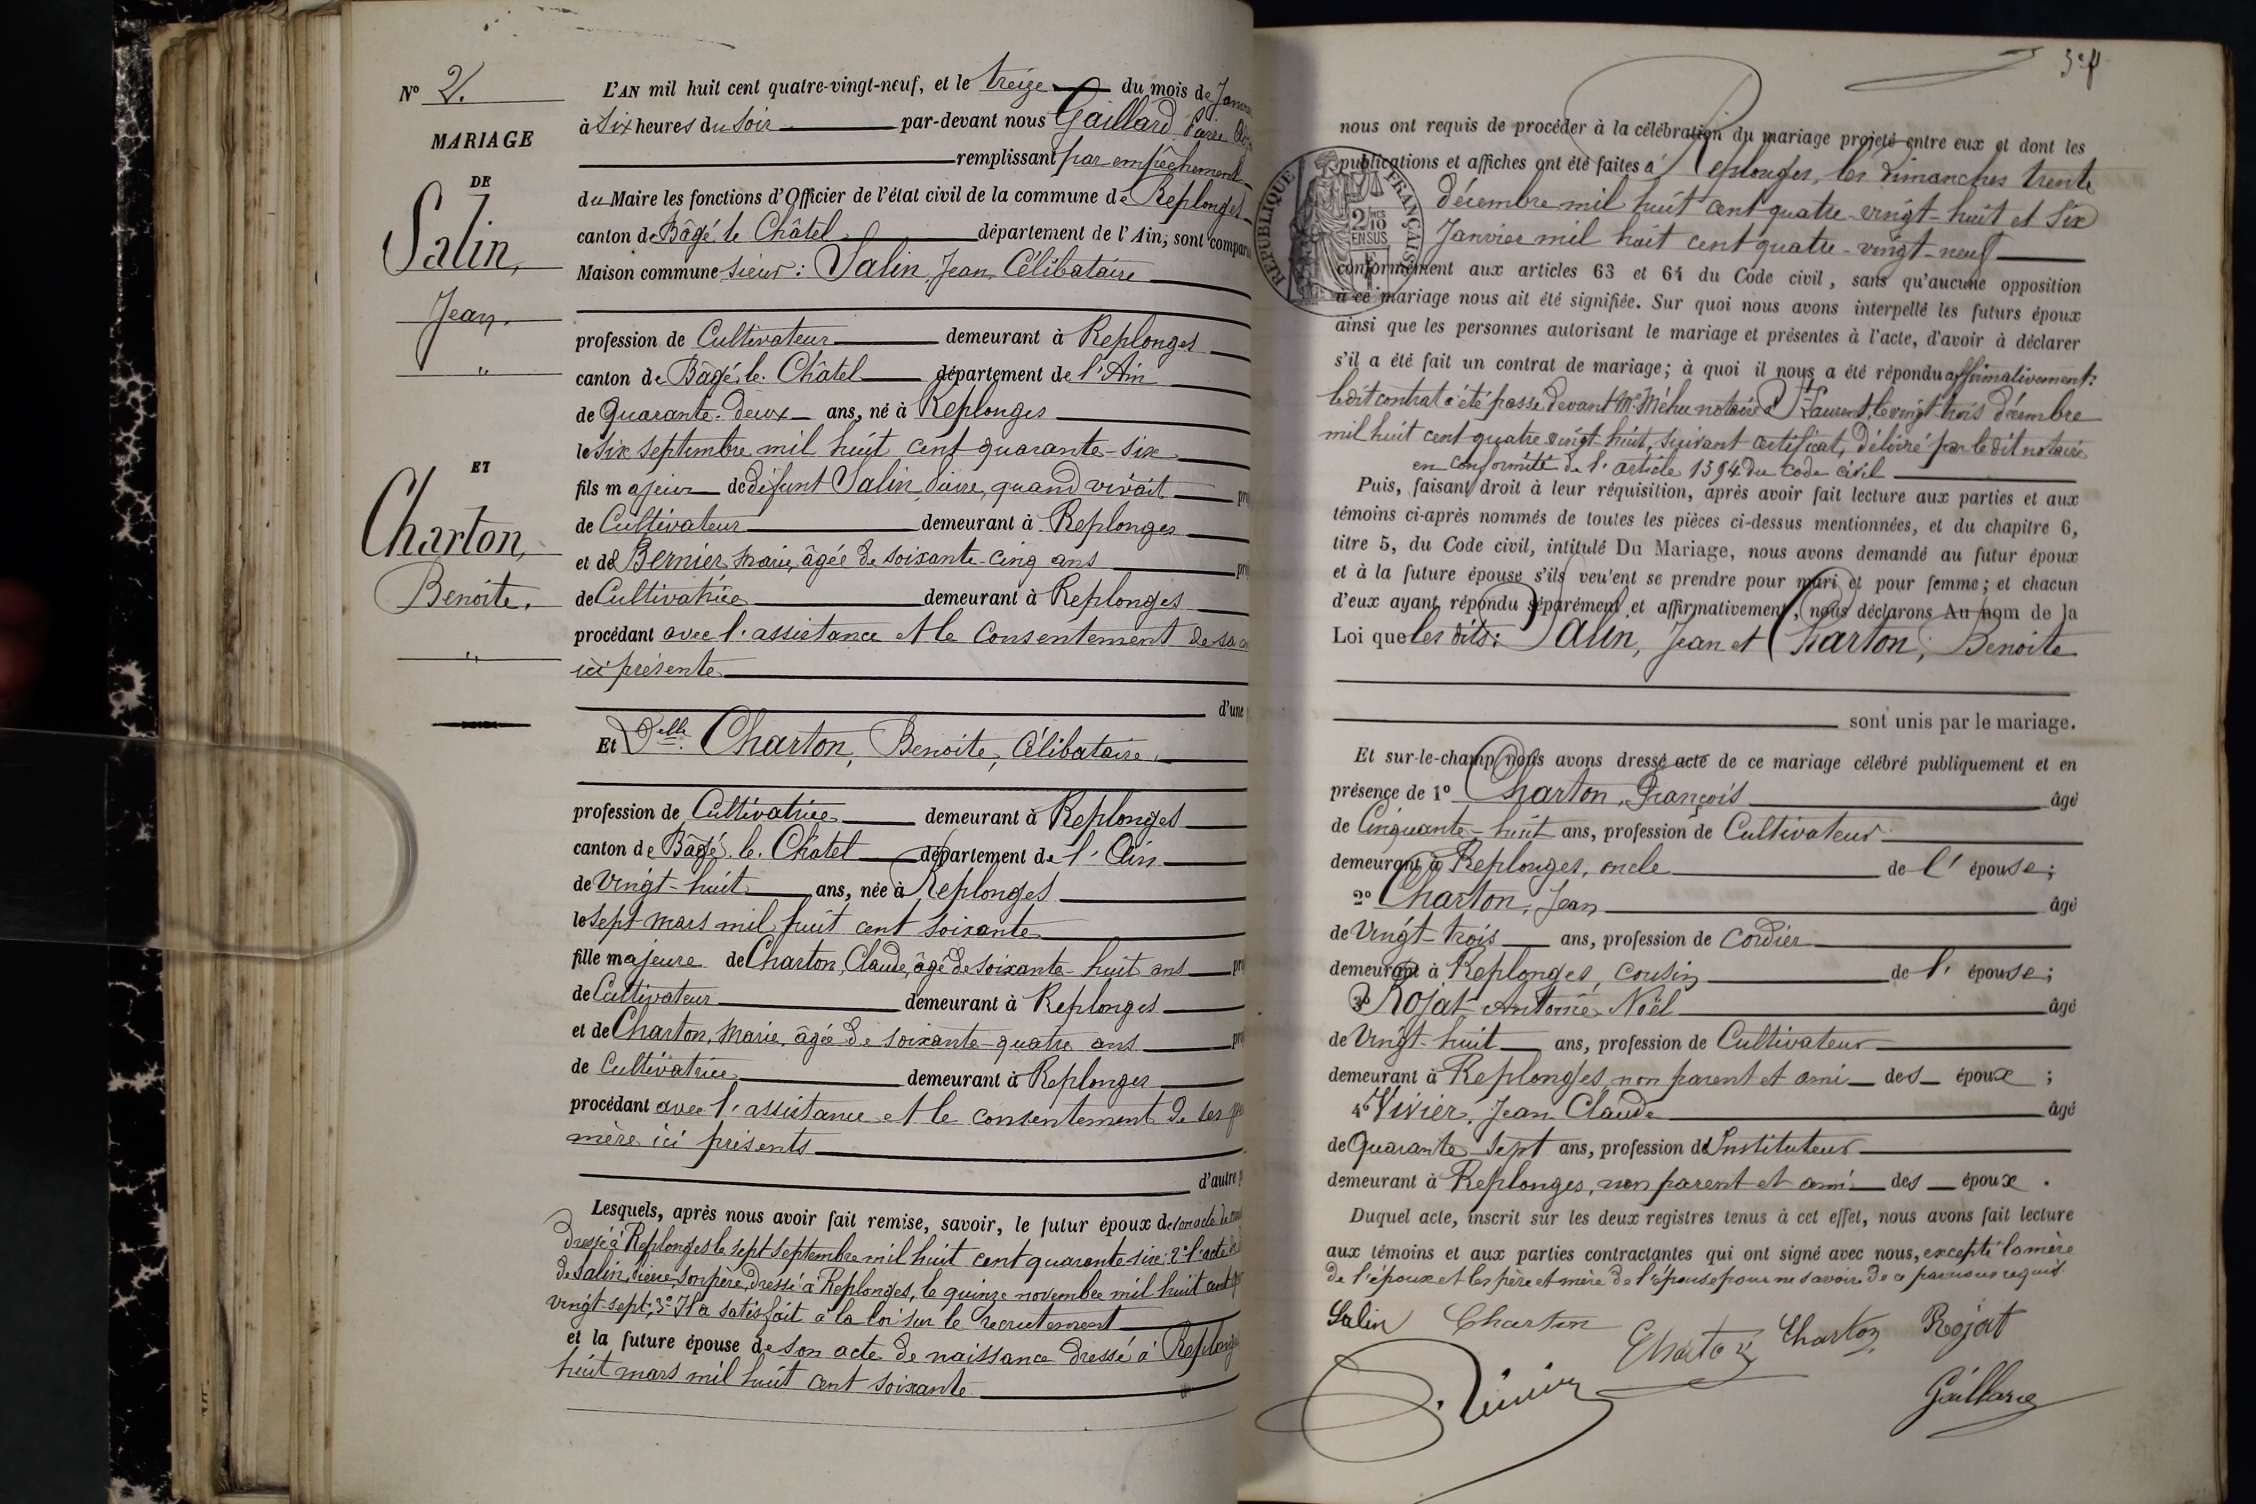 N° 2.
MARIAGE
DE
Salin,
Jean.
"
ET
Charton,
Benoite.
"
L'AN mil huit cent quatre-vingt-neuf, et le treize du mois de
à six heures du soir par-devant nous Gaillard
remplissant par empêchement
du Maire les fonctions d'Officier de l'état civil de la commune de Replonges
canton de Bâgé le Châtel département de l'Ain, sont
Maison commune sieur : Salin, Jean, Célibataire
profession de Cultivateur demeurant à Replonges
canton de Bâgé-le-Châtel département de l'Ain
de Quarante-deux ans, né à Replonges
le six septembre mil huit cent quarante-six
fils majeur de défunt Salin, quand vivait
de Cultivateur demeurant à Replonges
et de Bernier Marie, âgée de soixante-cinq ans
de Cultivatrice demeurant à Replonges
procédant avec l'assistance et le consentement de sa
ici présente
d'une
Et Delle Charton, Benoite, Célibataire.
profession de Cultivatrice demeurant à Replonges
canton de Bâgé-le-Châtel département de l'Ain
de vingt-huit ans, née à Replonges
le sept mars mil huit cent soixante
fille majeure de Charton, Claude, âgé de soixante-huit ans
de Cultivateur demeurant à Replonges
et de Charton, Marie, âgée de soixante-quatre ans
de Cultivatrice demeurant à Replonges
procédant avec l'assistance et le consentement de ses
mère ici présents
d'autre
Lesquels, après nous avoir fait remise, savoir, le futur époux de son acte de
dressé à Replonges le sept septembre mil huit cent quarante-six; 2° l'acte de
de Salin, son père, dressé à Replonges, le quinze novembre mil huit cent
vingt-sept; 3° Il a satisfait à la loi sur le recrutement
et la future épouse de son acte de naissance dressé à
huit mars mil huit cent soixante
nous ont requis de procéder à la célébration du mariage projeté entre eux et dont les
publications et affiches ont été faites à Replonges, les dimanches trente
décembre mil huit cent quatre-vingt-huit et six
Janvier mil huit cent quatre-vingt-neuf
RÉPUBLIQUE FRANÇAISE
conformément aux articles 63 et 64 du Code civil, sans qu'aucune opposition
à ce mariage nous ait été signifiée. Sur quoi nous avons interpellé les futurs époux
ainsi que les personnes autorisant le mariage et présentes à l'acte, d'avoir à déclarer
s'il a été fait un contrat de mariage; à quoi il nous a été répondu affirmativement:
le dit contrat a été passé devant Me Méhu notaire à St Laurent, le vingt-trois décembre
mil huit cent quatre vingt-huit, suivant certificat, délivré par le dit notaire
en conformité de l'article 1394 du code civil
Puis, faisant droit à leur réquisition, après avoir fait lecture aux parties et aux
témoins ci-après nommés de toutes les pièces ci-dessus mentionnées, et du chapitre 6,
titre 5, du Code civil, intitulé Du Mariage, nous avons demandé au futur époux
et à la future épouse s'ils veulent se prendre pour mari et pour femme; et chacun
d'eux ayant répondu séparément et affirmativement, nous déclarons Au nom de la
Loi que les dits: Salin, Jean et Charton, Benoite
sont unis par le mariage.
Et sur-le-champ nous avons dressé acte de ce mariage célébré publiquement et en
présence de 1° Charton, François âgé
de Cinquante-huit ans, profession de Cultivateur
demeurant à Replonges, oncle de l'épouse;
2° Charton, Jean âgé
de Vingt-trois ans, profession de cordier
demeurant à Replonges, cousin de l'épouse;
3° Rojat Antoine Noël âgé
de Vingt-huit ans, profession de Cultivateur
demeurant à Replonges, non parent et ami des époux;
4° Vivier, Jean Claude âgé
de Quarante-sept ans, profession d'Instituteur
demeurant à Replonges, non parent et ami des époux.
Duquel acte, inscrit sur les deux registres tenus à cet effet, nous avons fait lecture
aux témoins et aux parties contractantes qui ont signé avec nous, excepté la mère
de l'époux et les père et mère de l'épouse pour ne savoir de ce par nous requis.
Salin Charton Charton Charton Rojat
Vivier Gaillard